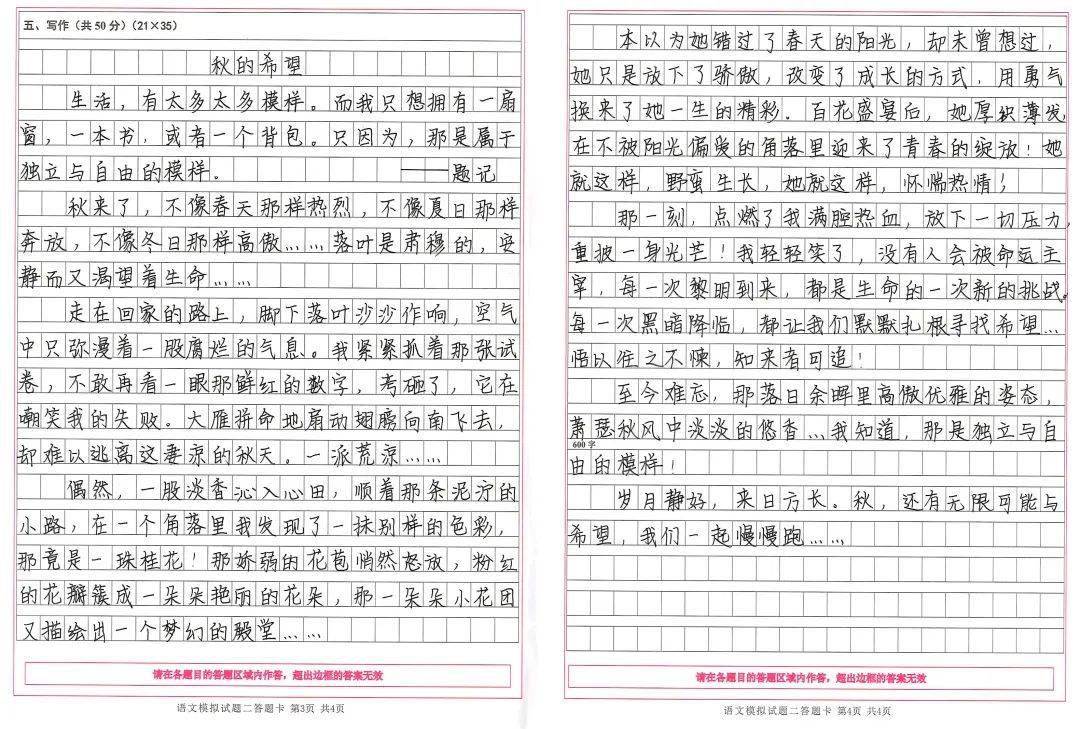 五、写作（共50分）（21×35）
秋的希望
生活，有太多太多模样。而我只想拥有一扇
窗，一本书，或者一个背包。只因为，那是属于
独立与自由的模样。 ——题记
秋来了，不像春天那样热烈，不像夏日那样
奔放，不像冬日那样高傲……落叶是肃穆的，安
静而又渴望着生命……
走在回家的路上，脚下落叶沙沙作响，空气
中只弥漫着一股腐烂的气息。我紧紧抓着那张试
卷，不敢再看一眼那鲜红的数字，考砸了，它在
嘲笑我的失败。大雁拼命地扇动翅膀向南飞去，
却难以逃离这凄凉的秋天。一派荒凉……
偶然，一股淡香沁入心田，顺着那条泥泞的
小路，在一个角落里我发现了一抹别样的色彩，
那竟是一珠桂花！那娇弱的花苞悄然怒放，粉红
的花瓣簇成一朵朵艳丽的花朵，那一朵朵小花团
又描绘出一个梦幻的殿堂……
请在各题目的答题区域内作答，超出边框的答案无效
语文模拟试题二答题卡 第3页 共4页
本以为她错过了春天的阳光，却未曾想过，
她只是放下了骄傲，改变了成长的方式，用勇气
换来了她一生的精彩。百花盛宴后，她厚积薄发
在不被阳光偏爱的角落里迎来了青春的绽放！她
就这样，野蛮生长，她就这样，怀惴热情！
那一刻，点燃了我满腔热血，放下一切压力，
重披一身光芒！我轻轻笑了，没有人会被命运主
宰，每一次黎明到来，都是生命的一次新的挑战。
每一次黑暗降临，都让我们默默扎根寻找希望…
悟以往之不谏，知来者可追！
至今难忘，那落日余晖里高傲优雅的姿态，
萧瑟秋风中淡淡的悠香…我知道，那是独立与自
600字
由的模样！
岁月静好，来日方长。秋，还有无限可能与
希望，我们一起慢慢跑……
请在各题目的答题区域内作答，超出边框的答案无效
语文模拟试题二答题卡 第4页 共4页